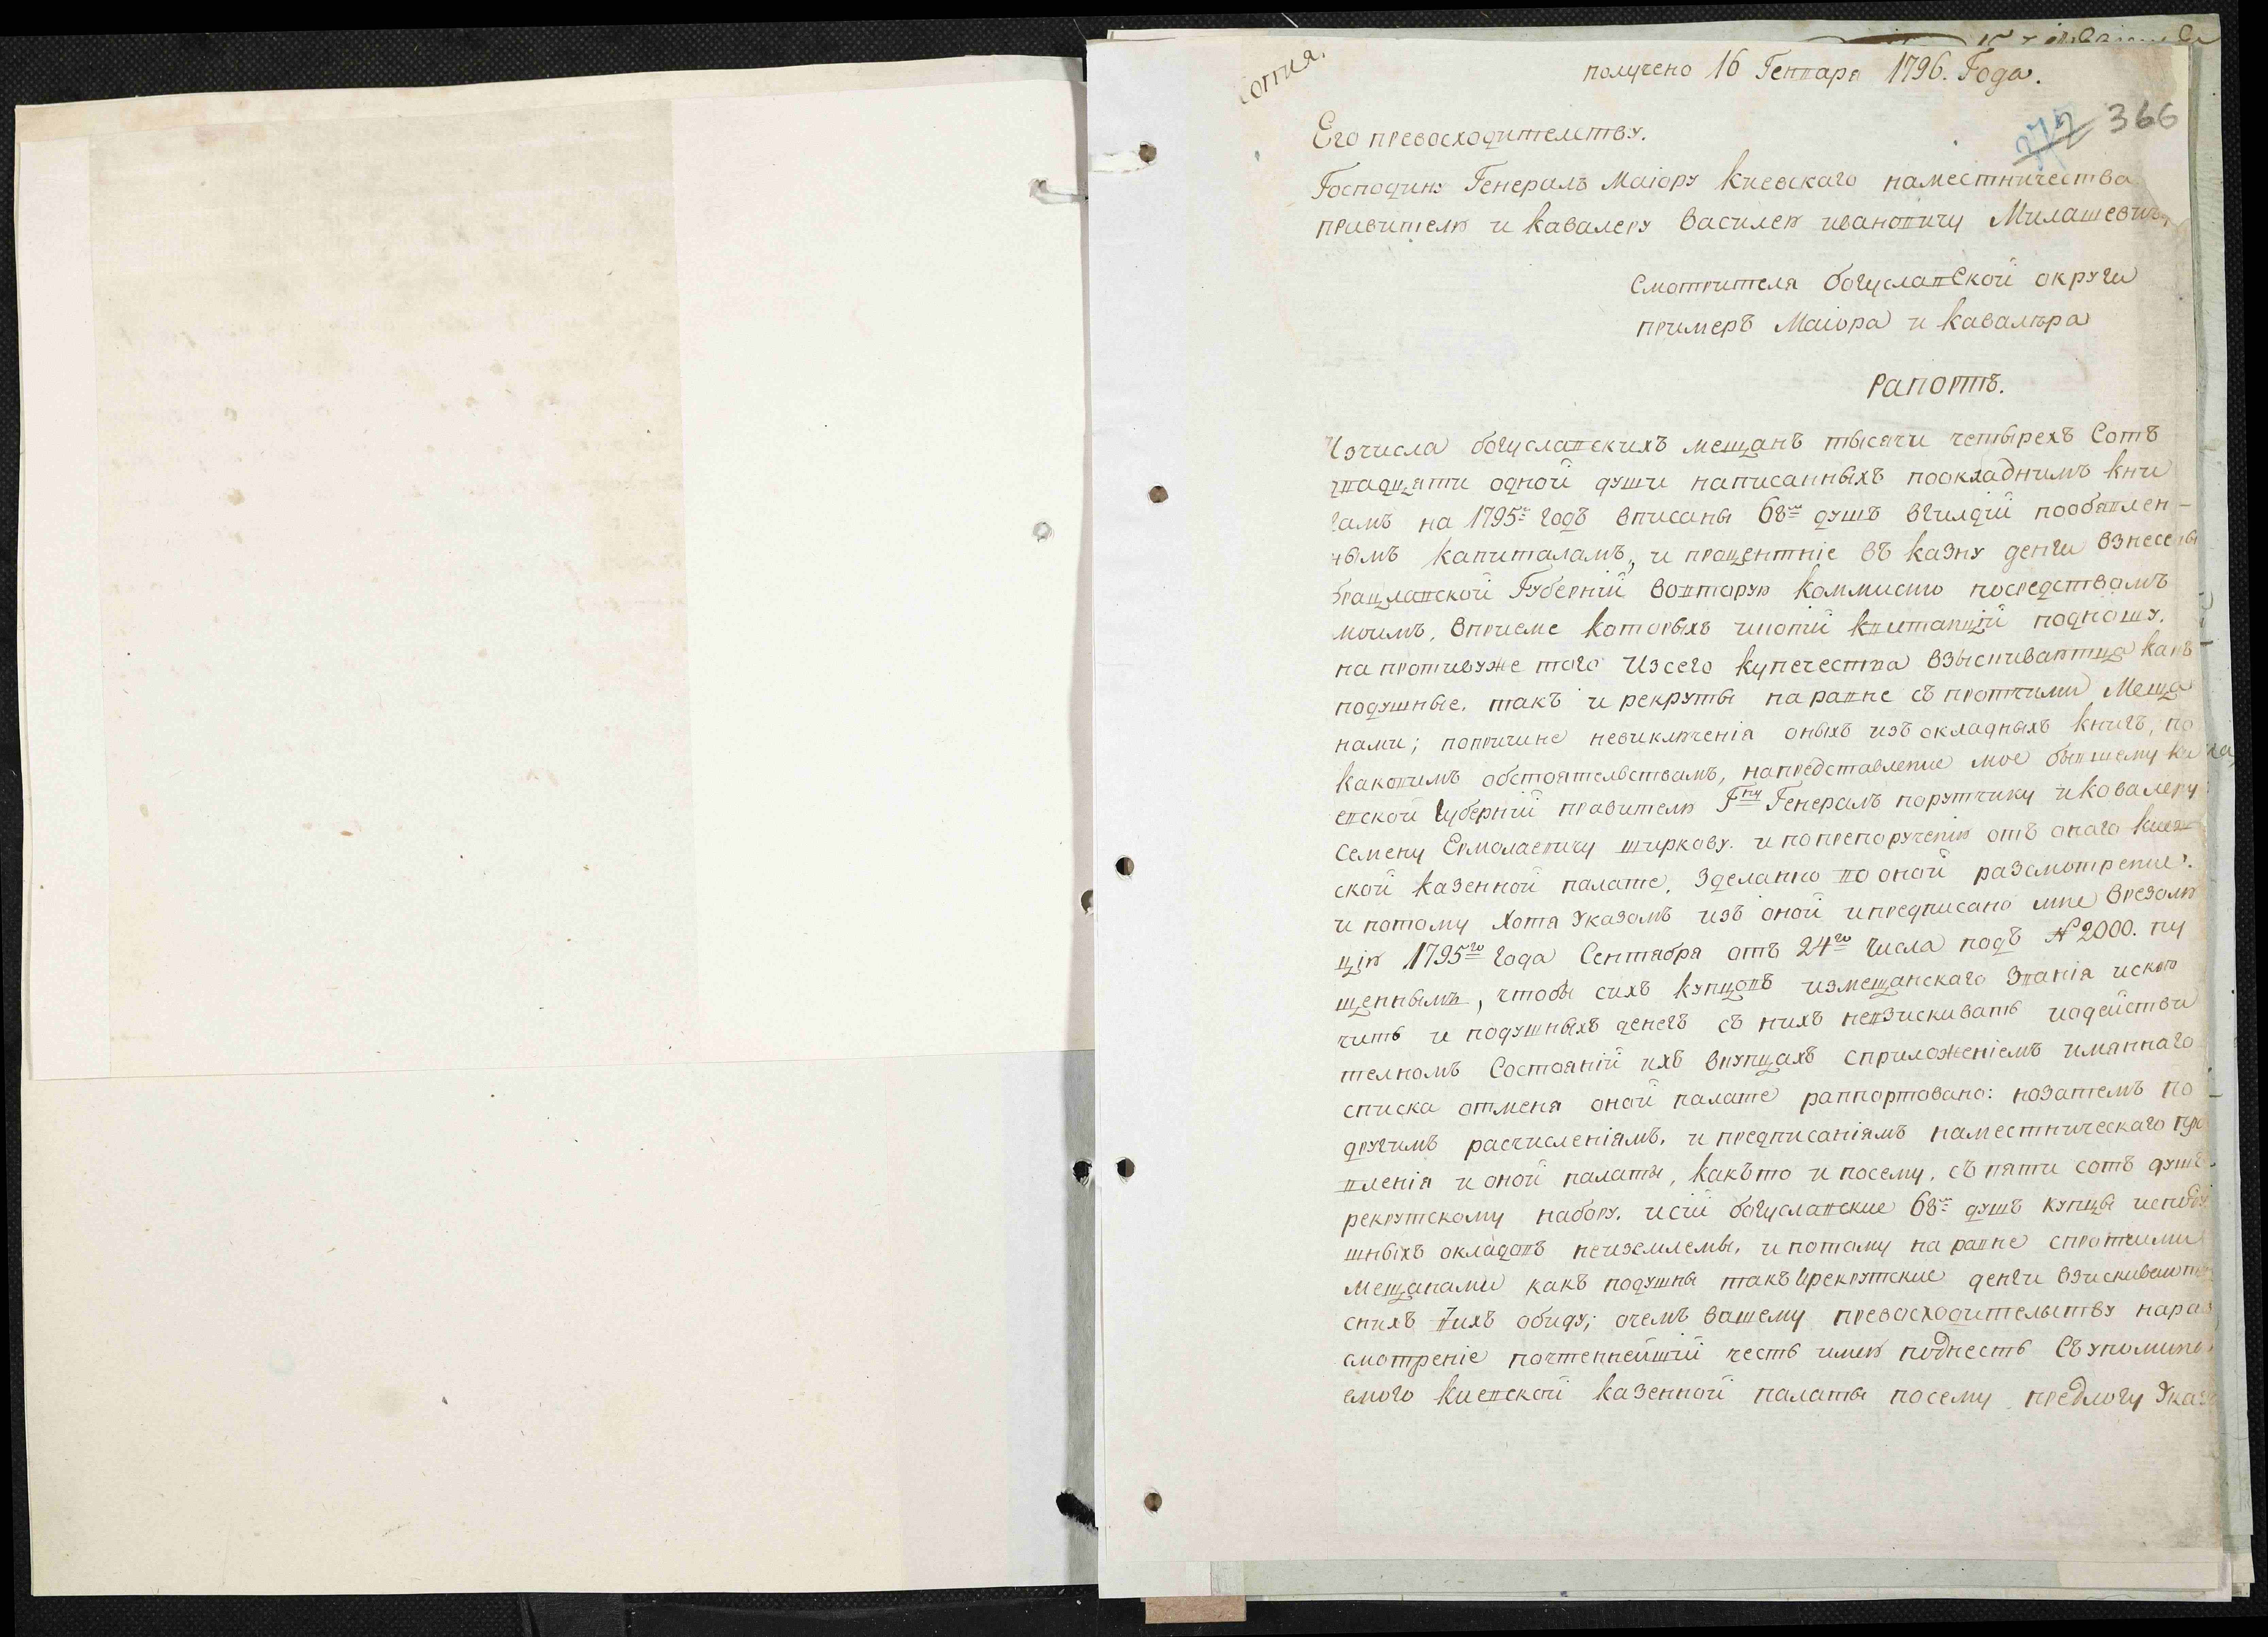 копия.
получено 16 Генваря 1796. Года.
272 366
Его превосходителству.
Господину Генералъ Маіору Киевскаго наместничества
правителю и кавалеру Василею ивановичу Милашевичу
Смотрителя богуславской округи
примеръ Маіора и кавалѣра
рапортъ.
Изчисла богуславскихъ мещанъ тысячи четырехъ Сотъ
дватцяти одной души написанныхъ поокладнимъ кни
гамъ на 1795й годъ вписаны 68мъ душъ вгилдіи пообявлен-
нымъ капиталамъ, и працентніе въ казну денги взнесены
брацлавской Губерніи вовторую коммисию посредствомъ
моимъ, вприеме которыхъ чиотій квитанцій подношу.
на противуже того Изсего купечества взыскиваютца какъ
подушные, такъ и рекруты на равне съ протчими Меща
нами; попричине невиключенія оныхъ изъ окладныхъ книгъ, по
каковимъ обстоятельствамъ, напредставление мое бывшему ки
евской Губерніи правителю Гну Генералъ порутчику и ковалеру
Семену Ермолаевичу ширкову. и попрепорученію отъ онаго киев
ской казенной палате, зделанно по оной разсмотрение.
и потому хотя Указомъ изъ оной и предписано мне врезолю
цію 1795го года Сентября отъ 24го числа подъ № 2000. пу
щеннымъ, чтобы сихъ купцовъ измещанскаго званія исклю
чить и подушныхъ денегъ съ нихъ невзискивать иодействи
телномъ Состояній ихъ вкупцахъ сприложеніемъ имяннаго
списка отменя оной палате раппортовано: нозатемъ по
другимъ расчисленіямъ, и предписаніямъ наместническаго пра
вленія и оной палаты, какъто и посему, съ пяти сотъ душъ
рекрутскому набору, исіи богуславские 68мъ душъ купцы исподу
шныхъ окладовъ неизъемлемы, и потому на равне спротчими
Мещанами какъ подушны такъ ирекрутские денги взискиваютца
снихъ вихъ обиду; очемъ вашему превосходительству нараз
смотреніе почтеннейшій честь имею поднесть Съупомина
емого киевской казенной палаты посему предлогу Указа